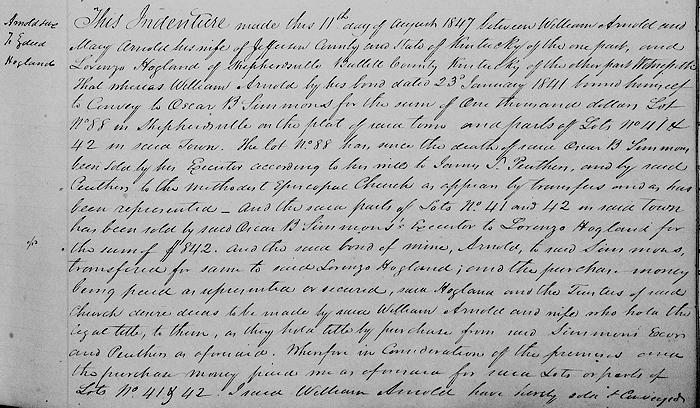 Arnold &ux
To Deed
Hogland
This Indenture made this 11th day of August 1847 between William Arnold and
Mary Arnold his wife of Jefferson County and State of Kentucky of the one part, and
Lorenzo Hogland of Shepherdsville Bullitt County Kentucky of the other part Witnesseth
That whereas William Arnold by his bond dated 23d January 1841 bound himself
to Convey to Oscar B Simmons for the sum of One thousand dollars Lot
No 88 in Shepherdsville on the plat of said town and parts of Lots No 41 &
42 in said Town. The lot No 88 has since the death of said Oscar B Simmons
been sold by his Executor according to his will to James S. Penther, and by said
Penther to the Methodist Episcopal Church as appears by transfers and as has
been represented – And the said parts of Lots No 41 and 42 in said town
has been sold by said Oscar B Simmons's Executor to Lorenzo Hogland for
the sum of $842. And the said bond of mine, Arnold, to said Simmons,
transfered for same to said Lorenzo Hogland; and the purchase money
being paid as represented or secured, said Hogland and the Trustees of said
Church desire deeds to be made by said William Arnold and wife who hold the
legal title, to them, as they hold title by purchase from said Simmons Exors
and Penther as aforesaid. Wherefore in Consideration of the premises and
the purchase money paid me as aforesaid for said Lots or parts of
Lots No. 41 & 42. I said William Arnold have hereby sold & Conveyed